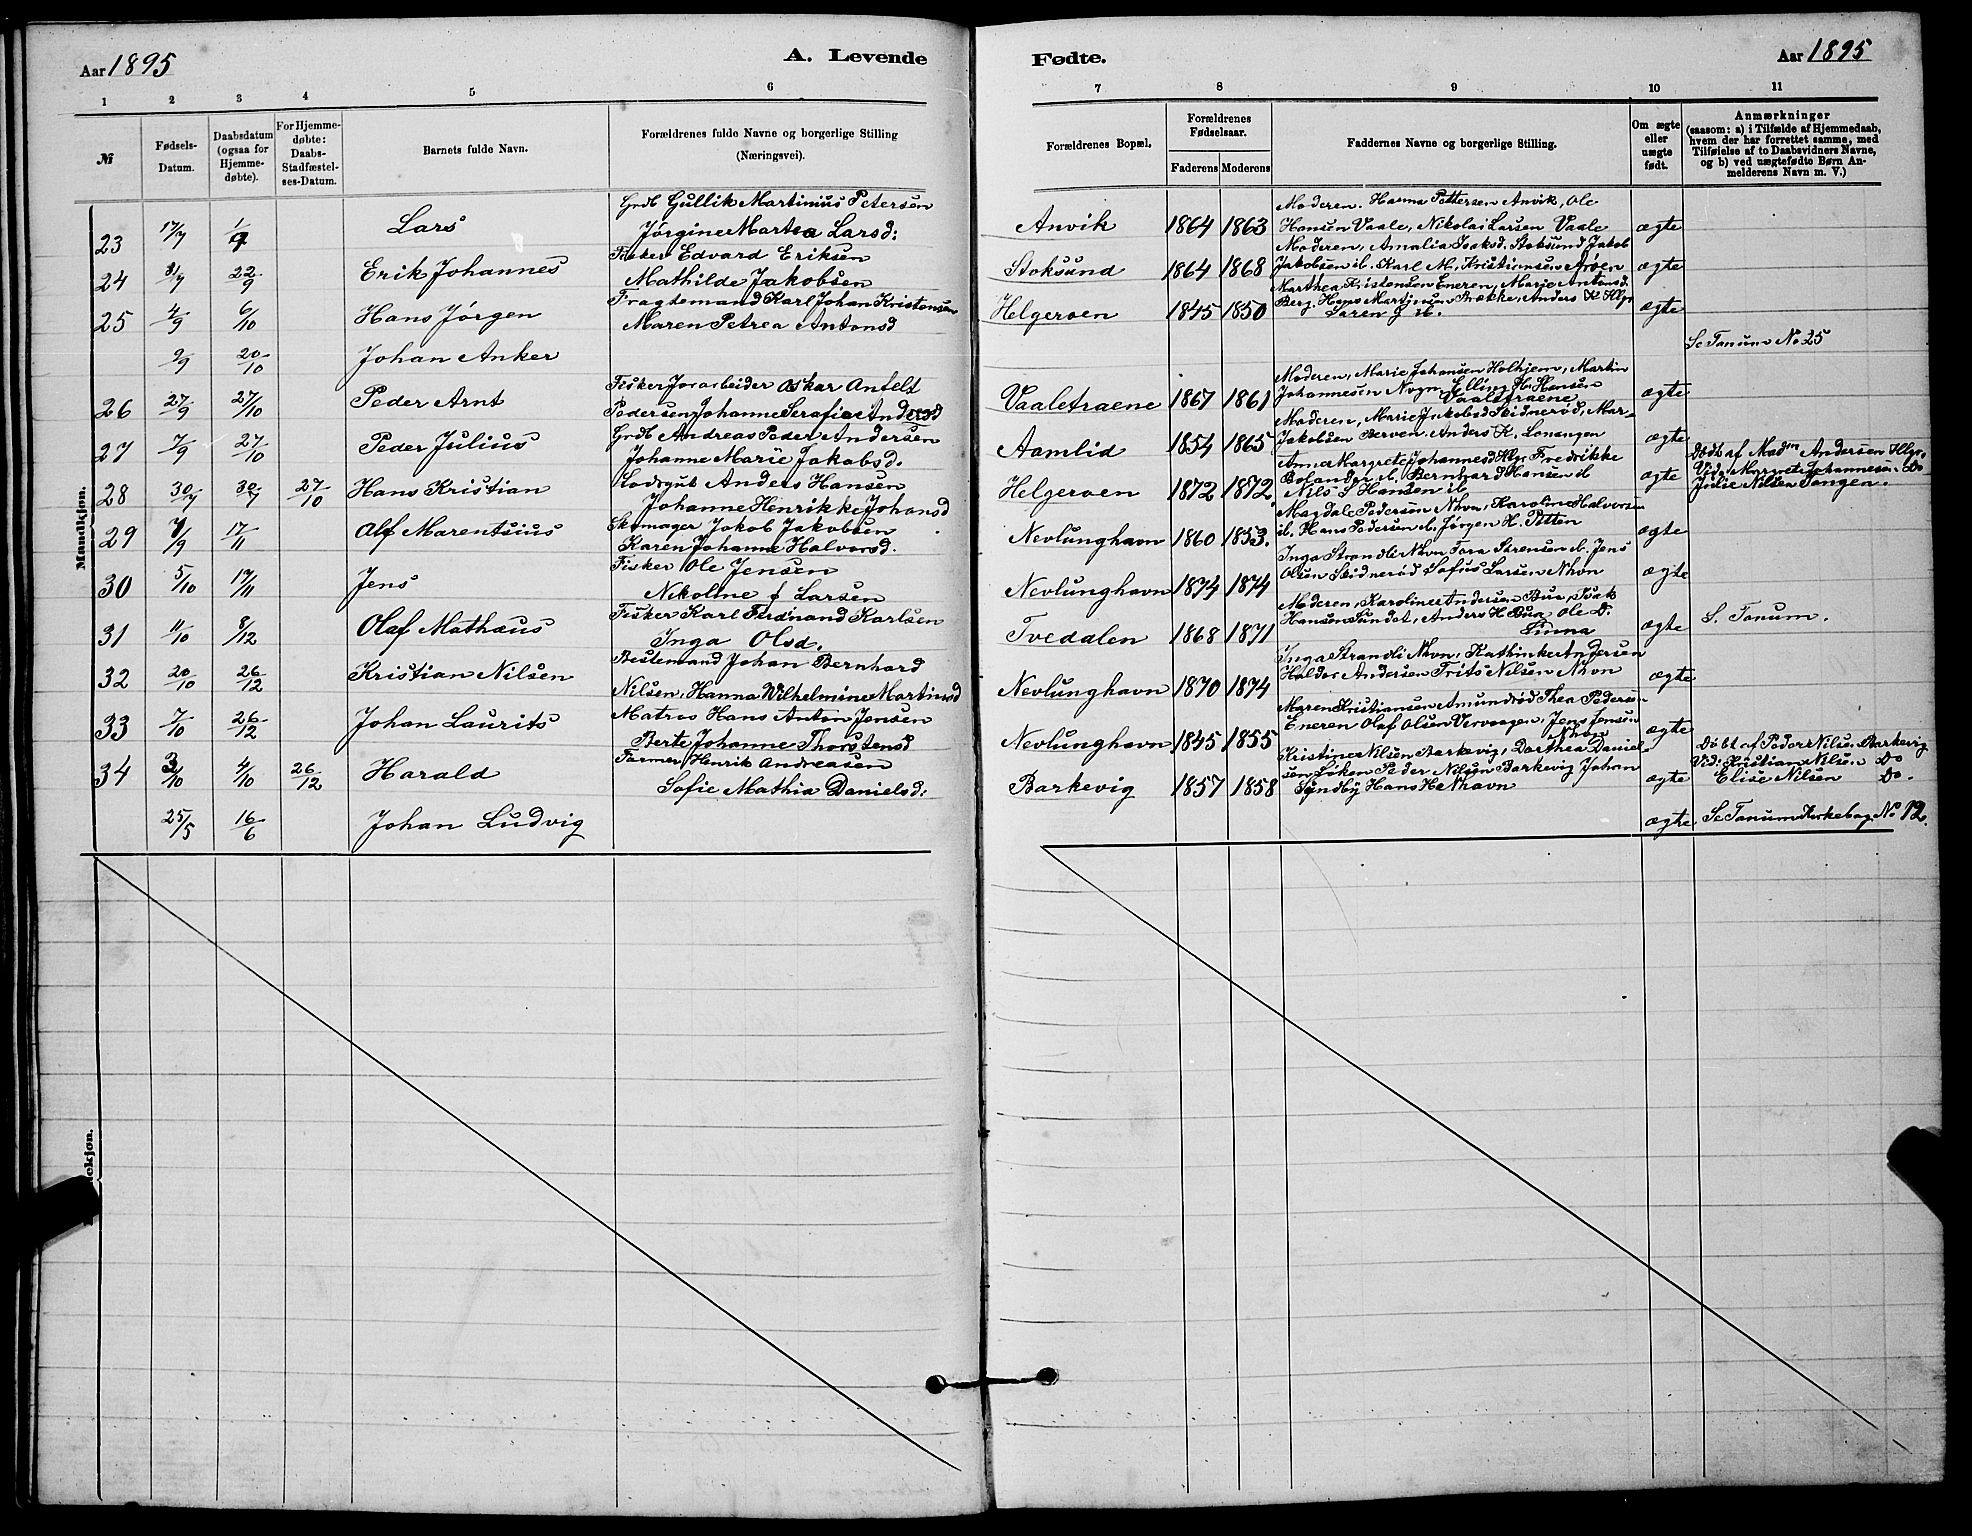 Aar 1895
A. Levende
1 2 3 4 5 6
№
Fødsels-
Datum.
Daabsdatum
(ogsaa for
Hjemme-
døbte).
For Hjemme-
døbte:
Daabs-
Stadfæstel-
ses-Datum.
Barnets fulde Navn.
Forældrenes fulde Navne og borgerlige Stilling
(Næringsvei).
Mandkjøn.
Grdb Gullik Martinius Petersen
23 17/7 1/9 Lars Jørgine Martea Larsd:
Fisker Edvard Eriksen
24 31/7 22/9 Erik Johannes Mathilde Jakobsen
Fragdemand Karl Johan Kristensen
25 4/9 6/10 Hans Jørgen Maren Petrea Antonsd
9/9 20/10 Johan Anker
Fisker Jorarbeider Oskar Antelt
26 27/9 27/10 Peder Arnt Pedersen, Johanne Serafia Andersd
Grdb Andreas Peder Andersen
27 7/9 27/10 Peder Julius Johanne Marie Jakobsd.
Lodsgut Anders Hansen
28 30/7 30/7 27/10 Hans Kristian Johanne Henrikke Johansd
Skomager Jakob Jakobsen
29 7/9 17/11 Alf Marentsius Karen Johanne Halvorsd.
Fisker Ole Jensen
30 5/10 17/11 Jens Nikoline J Larsen
Fisker Karl Ferdinand Karlsen
31 11/10 8/12 Olaf Mathæus Inga Olsd.
Bestemand Johan Bernhard
32 20/10 26/12 Kristian Nilsen Nilsen, Hanna Wilhelmine Martinsd
Matros Hans Anton Jensen
33 7/10 26/12 Johan Laurits Berte Johanne Thorstensd
Farmer Henrik Andreasen
34 3/10 4/10 26/12 Harald Sofie Mathia Danielsd:
25/5 16/6 Johan Ludvig
ekjøn.
Fødte.
Aar 1895
7 8 9 10 11
Forældrenes Bopæl,
Forældrenes
Fødselsaar.
Faderens Moderens
Faddernes Navne og borgerlige Stilling.
Om ægte
eller
uægte
født.
Anmærkninger
(saasom: a) i Tilfælde af Hjemmedaab,
hvem der har forrettet samme, med
Tilføielse af to Daabsvidners Navne,
og b) ved uægtefødte Børn An-
melderens Navn m. V.)
Moderen. Hanna Pettersen Anvik, Ole
Anvik 1864 1863 Hansen Vaale, Nikolai Larsen Vaale ægte
Moderen, Amalia Isaksd. Stoksund Jakob
Stoksund 1864 1868 Jakobsen ib. Karl M. Kristiansen Arøen ægte
Marthea Kristensen Eneren, Marie Antonsd.
Helgeroen 1845 1850 Berg. Hans Martinsen Brække, Anders K Hlgr ægte
Laren J ib.
Se Tanum No 25
Moderen, Marie Johansen Holhjem, Martin
Vaaletraene 1867 1861 Johannesen Nvgn, Elling H. Hansen ægte
Vaaletraene
Moderen, Marie Jakobsd Seidnerød, Mar-
Aamlid 1854 1865 Jakobsen Berven. Anders K. Lonangen ægte
Anna Margrete Johannesd Hlgr Fredrikke
Helgeroen 1872 1872 Bolander ib. Bernhard Hansen ib ægte
Nils S Hansen ib
Døbt af Madm Andersen Hlgr.
Vid: Margrete Johannesen Do
Julie Nilsen Tangen.
Magdale Pedersen Nhvn, Karoline Halvorsen
Nevlunghavn 1860 1853. ib. Hans Pedersen ib. Jørgen H. Petten ægte
Inga Strandli Nhvn Tora Sørensen ib. Jens
Nevlunghavn 1874 1874 Olsen Seidnerød Sofus Larsen Nhvn ægte
Moderen, Karoline Andersen Bua, Isak
Tvedalen 1868 1871 Hansen Sundet, Anders H Bua, Ole D. ægte S. Tanum.
Linna
Inga Strandli Nhvn, Kathinka Andersen
Nevlunghavn 1870 1874 Haldor Andersen Frits Nilsen Nhvn ægte
Maren Kristiansen Amundrød Thea Pedersen
Nevlunghavn 1845 1855 Eneren Olaf Olsen Vervaagen, Jens Jensen ægte
Nhvn
Kristine Nilsen Barkevig, Dorthea Daniel-
Barkevig 1857 1858 sen Løken Peder Nilsen Barkevig Johan ægte
Syndby Hans H. Nhavn
Døbt af Peder Nilsen Barkevig
Vid: Kristian Nilsen Do
Elise Nilsen Do.
ægte Se Tanum Kirkebog No 12.